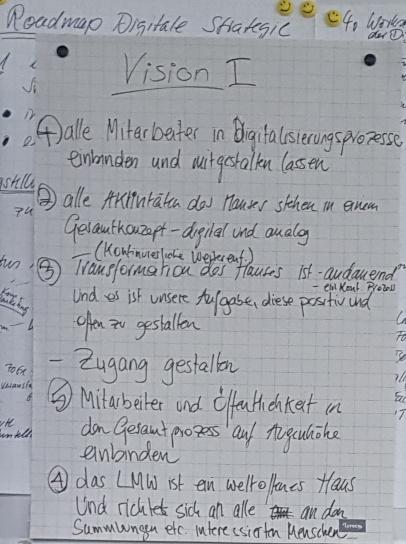 Roadmap Digitale Strategie
Vision I
① alle Mitarbeiter in Digitalisierungsprozesse
einbinden und mitgestalten lassen
② alle Aktivitäten des Hauses stehen in einem
Gesamtkonzept - digital und analog
(Kontinuierliche Weiterentf.)
③ Transformation des Hauses ist andauernd
- ein kont. Prozess
Und es ist unsere Aufgabe, diese positiv und
offen zu gestalten
- Zugang gestalten
⑤ Mitarbeiter und Öffentlichkeit in
den Gesamtprozess auf Augenhöhe
einbinden
④ das LMW ist ein weltoffenes Haus
Und richtet sich an alle an den
Sammlungen etc. interessierten Menschen